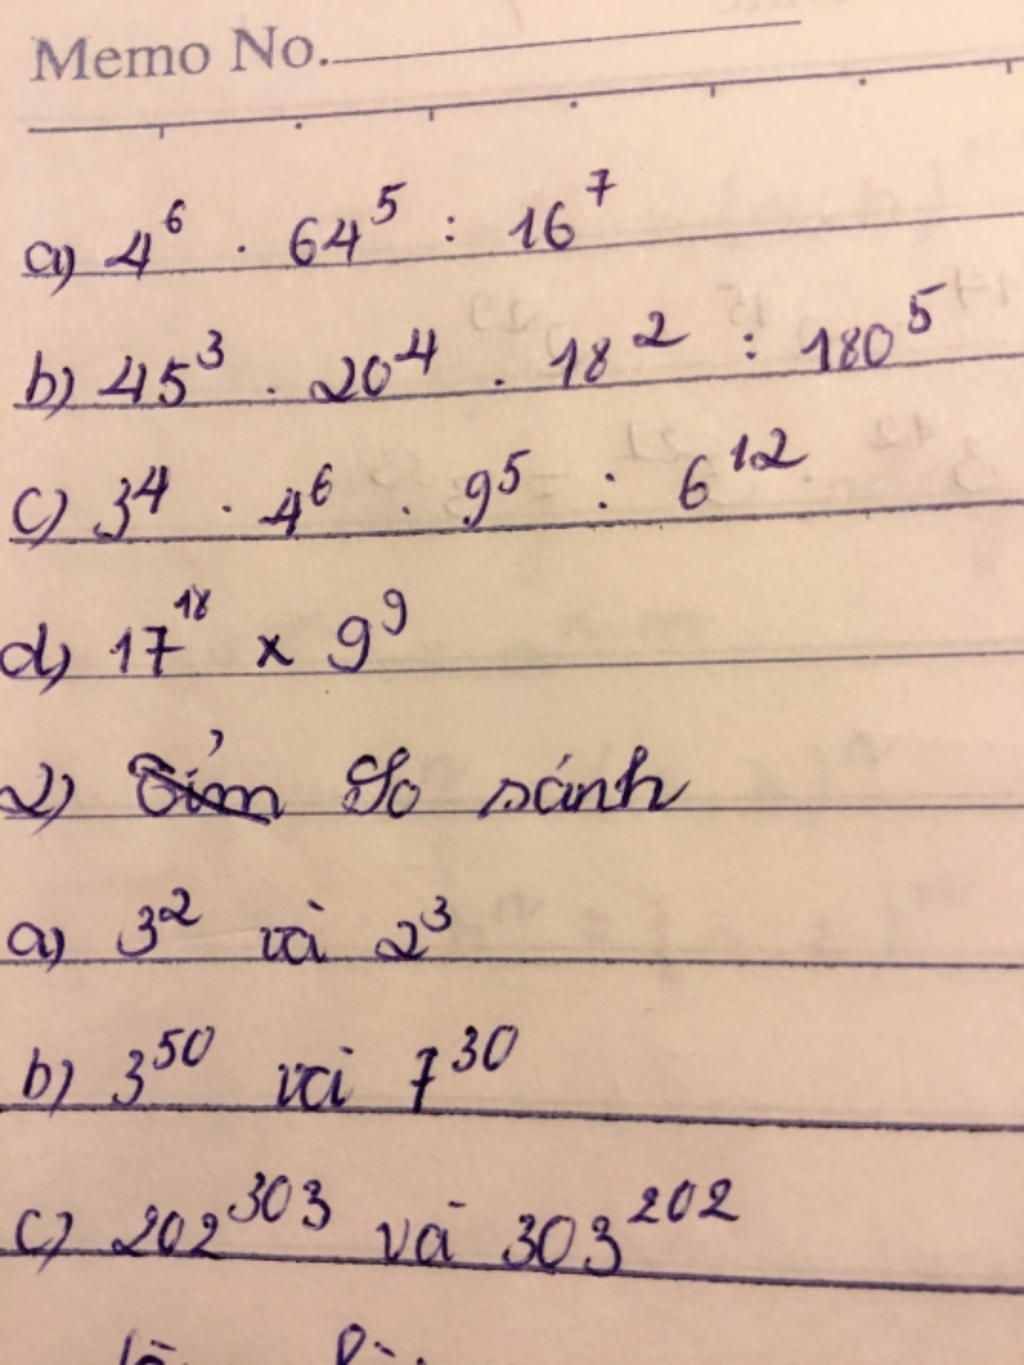 Memo No.
a) 4⁶ . 64⁵ : 16⁷
b) 45³ . 20⁴ . 18² : 180⁵
c) 3⁴ . 4⁶ . 9⁵ : 6¹²
d) 17¹⁸ x 9⁹
2) So sánh
a) 3² và 2³
b) 3⁵⁰ và 7³⁰
c) 202³⁰³ và 303²⁰²